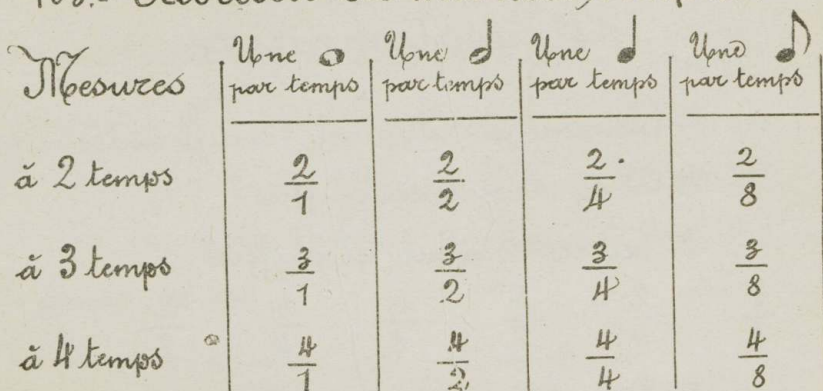 Mesures
Une 𝅝 par temps
Une 𝅗𝅥 par temps
Une ♩ par temps
Une ♪ par temps
à 2 temps 2/1 2/2 2/4 2/8
à 3 temps 3/1 3/2 3/4 3/8
à 4 temps 4/1 4/2 4/4 4/8